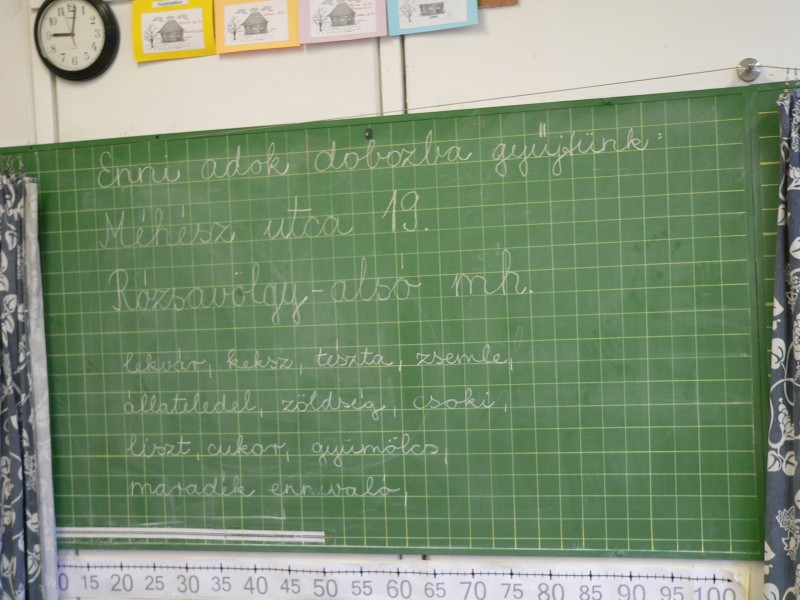 Enni adok dobozba gyűjtünk:
Méhész utca 19.
Rózsavölgy-alsó mh.
lekvár, keksz, tészta, zsemle,
állateledel, zöldség, csoki,
liszt, cukor, gyümölcs,
maradék ennivaló,
0 15 20 25 30 35 40 45 50 55 60 65 70 75 80 85 90 95 100